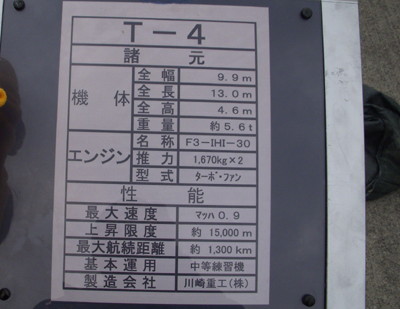 T－4
諸 元
機 体
全 幅 9.9m
全 長 13.0m
全 高 4.6m
重 量 約5.6t
エンジン
名 称 F3－IHI－30
推 力 1,670kg×2
型 式 ターボ・ファン
性 能
最大速度 マッハ0.9
上昇限度 約 15,000m
最大航続距離 約 1,300km
基本運用 中等練習機
製造会社 川崎重工(株)